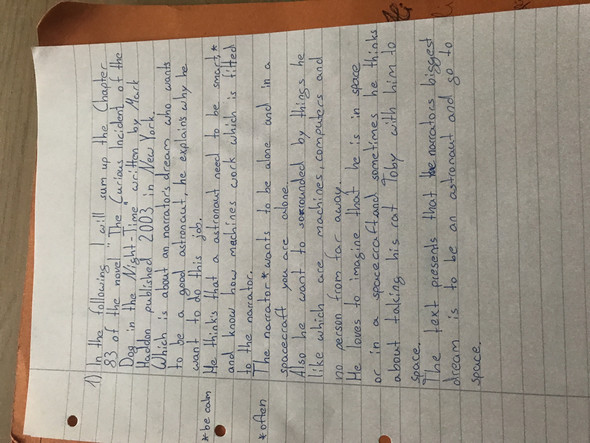 1) In the following I will sum up the Chapter
83 of the novel "The Curious Incident of the
Dog in the Night-Time" written by Mark
Haddon published 2003 in New York.
Which is about an narrators dream who wants
to be a good astronaut he explains why he
want to do this job.
* be calm He thinks that a astronaut need to be smart,*
and know how machines work which is fitted
to the narrator.
* often The narrator * wants to be alone and in a
spacecraft you are alone.
Also he want to sorrounded by things he
like which are machines, computers and
no person from far away.
He loves to imagine that he is in space
or in a spacecraft and sometimes he thinks
about taking his rat Toby with him to
space.
The text presents that the narrators biggest
dream is to be an astronaut and go to
space.